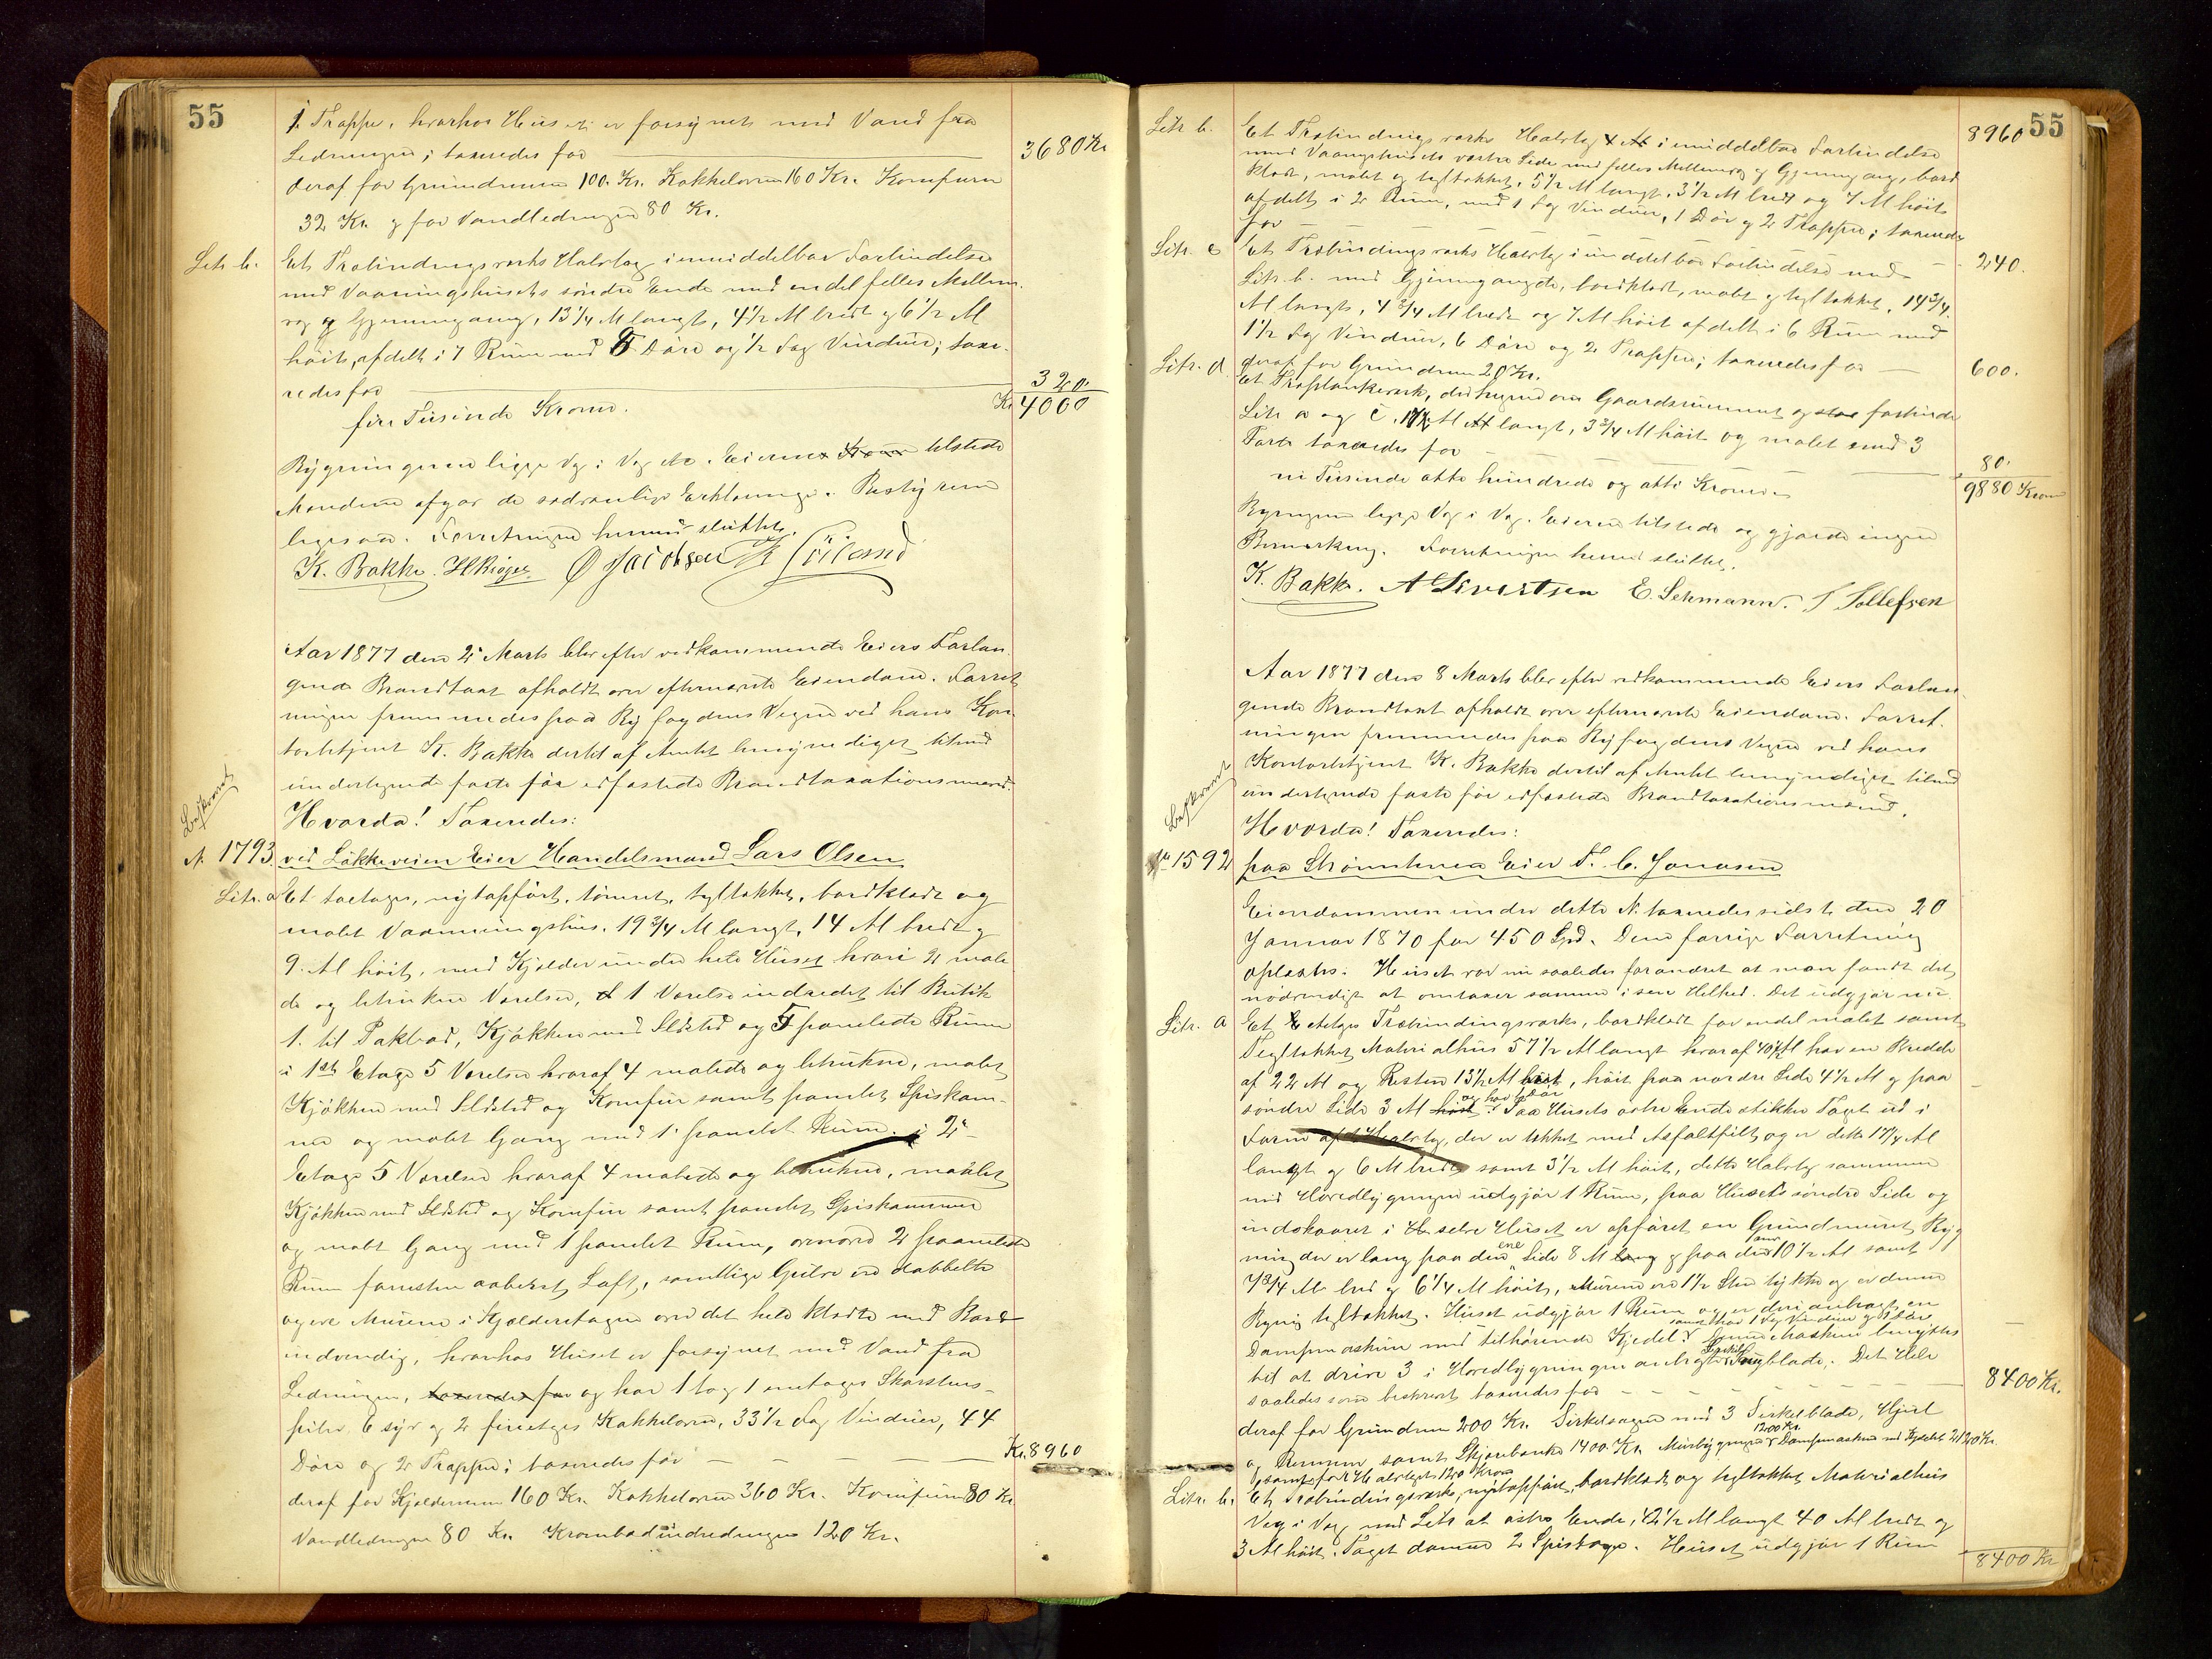 55
1 Trappe, hvorhos Huset er forsynet med Vand fra
Ledningen; taxeredes for
3680 Kr
deraf for Grundmuren 100 Kr. Kakkelovne 160 Kr. Komfuren
32 Kr. og for Vandledningen 80 Kr.
Litr b.
Et Træbindingsværks Halvtag i umiddelbar Forbindelse
med Vaaningshusets søndre Ende med endel felles Mellem-
væg og Gjennemgang, 13 1/4 Al langt, 4 1/2 Al bredt og 6 1/2 Al
høit, afdelt i 7 Rum med 8 Døre og 1/2 Fag Vinduer; taxe-
redes for
320.
fire Tusinde Kroner.
Kr 4000
Bygningerne ligge Væg i Væg etc. Eieren tilstede
Mændene afgav de sædvanlige Erklæringer. Bestyreren
ligesaa. Forretningen hermed sluttet.
K. Bakke. H Riege. O Jacobsen
Aar 1877 den 2 Marts blev efter vedkommende Eiers Forlan-
gende Brandtaxt afholdt over efternævnte Eiendom. Forret-
ningen fremmedes paa Byfogdens Vegne ved hans Kon-
torbetjent K. Bakke dertil af Amtet bemyndiget tilmed
undertegnede faste før edfæstede Brandtaxationsmænd.
Hvorda! Taxeredes:
N. 1793
ved Løkkeveien Eier Handelsmand Lars Olsen
Litr. a
Et toetages, nyt opført, tømret, tegltækket, bordklædt og
malet Vaaningshus. 19 3/4 Al langt, 14 Al bredt og
9. Al høit, med Kjelder under hele Huset hvori 2 male
de og betrukne Værelser, 1 Værelse indredet til Butik
1. til Pakbod, Kjøkken med Ildsted og 5 panelede Rum
i 1ste Etage 5 Værelser hvoraf 4 malede og betrukne, malet
Kjøkken med Ildsted og Komfur samt panelet Spiskam-
mer og malet Gang med 1 panelet Rum. i 2den
Etage 5 Værelser hvoraf 4 malede og betrukne, malet
Kjøkken med Ildsted og Komfur samt panelet Spiskammer
og malet Gang med 1 panelet Rum, ovenover 2 paanelede
Rum forresten aabent Loft, samtlige Gulve ere dobbelte
og ere Murene i Kjelderetagen over det hele klædte med Bord
indvendig, hvorhos Huset er forsynet med Vand fra
Ledningen, taxeredes for og har 1 to og 1 enetages Skorstens-
piber, 6 syv og 2 fireetages Kakkelovne, 33 1/2 Fag Vinduer, 44
Døre og 2 Trapper; taxeredes for
Kr. 8960
deraf for Kjeldermuren 160 Kr. Kakkelovne 360 Kr. Komfurene 80 Kr
Vandledningen 80 Kr. Krambodindredningen 120 Kr.
55
8960
Litr b.
Et Træbindingsværks Halvtag i umiddelbar Forbindelse
med Vaaningshusets vestre Side med felles Mellemvæg og Gjennemgang, bord
klædt, malet og tegltækket, 5 1/2 Al langt, 3 1/2 Al bredt og 7 Al høit
afdelt i 2 Rum, med 1 Fag Vinduer, 1 Dør og 2 Trapper; taxeredes
for
240.
Litr. c
Et Træbindingsværks Halvtag i umiddelbar Forbindelse med
Litr. b. med Gjennemgange, bordklædt, malet og tegltækket, 14 3/4
Al langt, 4 3/4 Al bredt og 7 Al høit afdelt i 6 Rum med
1 1/2 Fag Vinduer, 6 Døre og 2 Trapper; taxeredes for
600.
deraf for Grundmur 20 Kr.
Litr. d
Et Træplankeværk, der hegner om Gaardsrummet og forbinder
Litr a og c, Al langt, 3 3/4 Al høit og malet med 3
Farver taxeredes for
80.
ni Tusinde otte hundrede og otti Kroner
9880 Kroner
Bygningerne ligge Væg i Væg. Eieren tilstede og gjorde ingen
Bemærkning. Forretningen hermed sluttet.
K. Bakke. A Sivertsen E. Lehmann. T Tollefsen
Aar 1877 den 8 Marts blev efter vedkommende Eiers Forlan-
gende Brandtaxt afholdt over efternævnte Eiendom. Forret-
ningen fremmedes paa Byfogdens Vegne ved hans
Kontorbetjent K. Bakke dertil af Amtet bemyndiget tilmed
undertegnede faste før edfæstede Brandtaxationsmænd.
Hvorda! Taxeredes:
N 1592
paa Strømstenen Eier T. C. Jonasen
Eiendommen under dette N. taxeredes sidst den 20
Januar 1870 for 450 Spd. Den forrige Forretning
oplæstes. Huset var nu saaledes forandret at man fandt det
nødvendigt at omtaxere samme i sin Helhed. Det udgjør nu
Litr. a
Et Etages Træbindingsværks, bordklædt for endel malet samt
Tegltækket Materialhus 57 1/2 Al langt hvoraf Al har en Bredde
af 22 Al og Resten 13 1/2 Al, høit paa nordre Side 4 1/2 Al og paa
søndre Side 3 Al høit. Paa Husets østre Ende stikker Taget ud i
Form af et Halvtag, der er tækket med Asfaltfilt, og er dette 17 1/4 Al
langt og 6 Al bredt samt 3 1/2 Al høit, dette Halvtag sammen
med Hovedbygningen udgjør 1 Rum, paa Husets søndre Side og
indskaaret i selve Huset er opført en Grundmuret Byg
ning der er lang paa den ene Side 8 Al og paa den anden 10 1/2 Al samt
7 3/4 Al bred og 6 1/4 Al høit, Murene ere 1 1/2 Sten tykke og er denne
Bygning tegltækket. Huset udgjør 1 Rum og er deri anbragt en
samt har 1 Fag Vinduer og 1 Dør
Dampmaskine med tilhørende Kjedel. Denne Maskine benyttes
til at drive 3 i Hovedbygningen anbragte Sirkelsaugblade. Det Hele
saaledes som beskrevet taxeredes for
8400 Kr.
deraf for Grundmur 200 Kr. Sirkelsagene med 3 Sirkelblade, Hjul
og Remmer samt Skjærebænke 1400 Kr. Murbygningen 1200 Kr. Dampmaskinen med Kjedel 2120 Kr.
samt for Halvtaget 120 Kroner
Litr. b.
Et Træbindingsværks, nyt opført, bordklædt og tegltækket Materialhus
Væg i Væg med Litr a østre Ende, 42 1/2 Al langt 40 Al bredt og
3 Al høit. Taget danner 2 Spidstage. Huset udgjør 1 Rum
8400 Kr